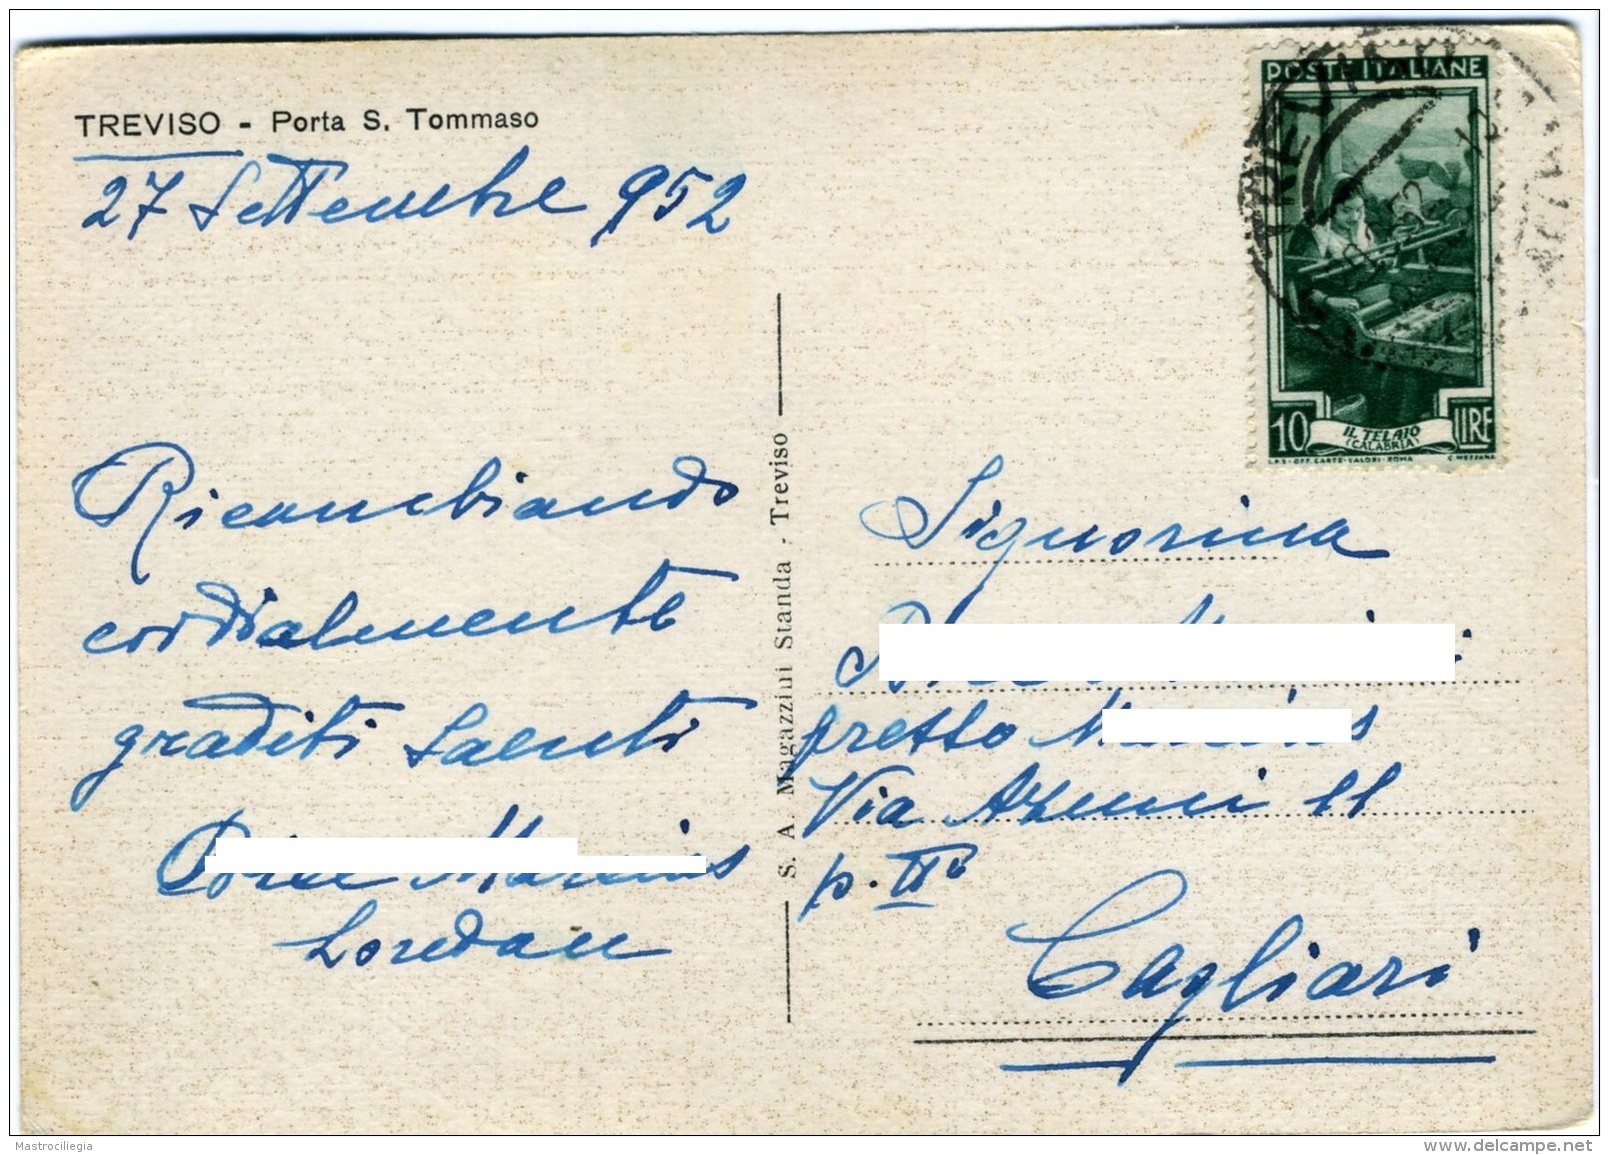 TREVISO - Porta S. Tommaso
27 Settembre 952
Ricambiando
cordialmente
graditi saluti
Loredan
S. A. Magazzini Standa - Treviso
POSTE ITALIANE
10 LIRE
IL TELAIO
(CALABRIA)
I.P.S. - OFF. CARTE - VALORI - ROMA C. MEZZANA
TREVISO
Signorina
presso
Via Azuni 11
p. II°
Cagliari
Mastrociliegia
www.delcampe.net